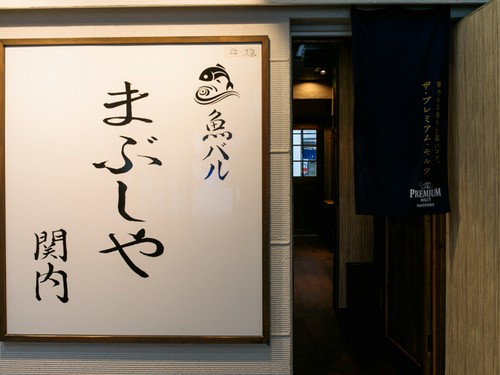 魚バル
まぶしや
関内
ザ・プレミアム・モルツ
The
PREMIUM
MALT'S
SUNTORY